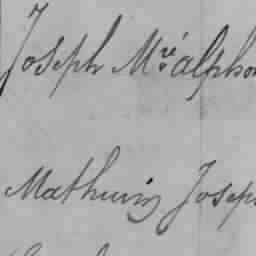 Joseph M.ie alphon
Mathurin Joseph